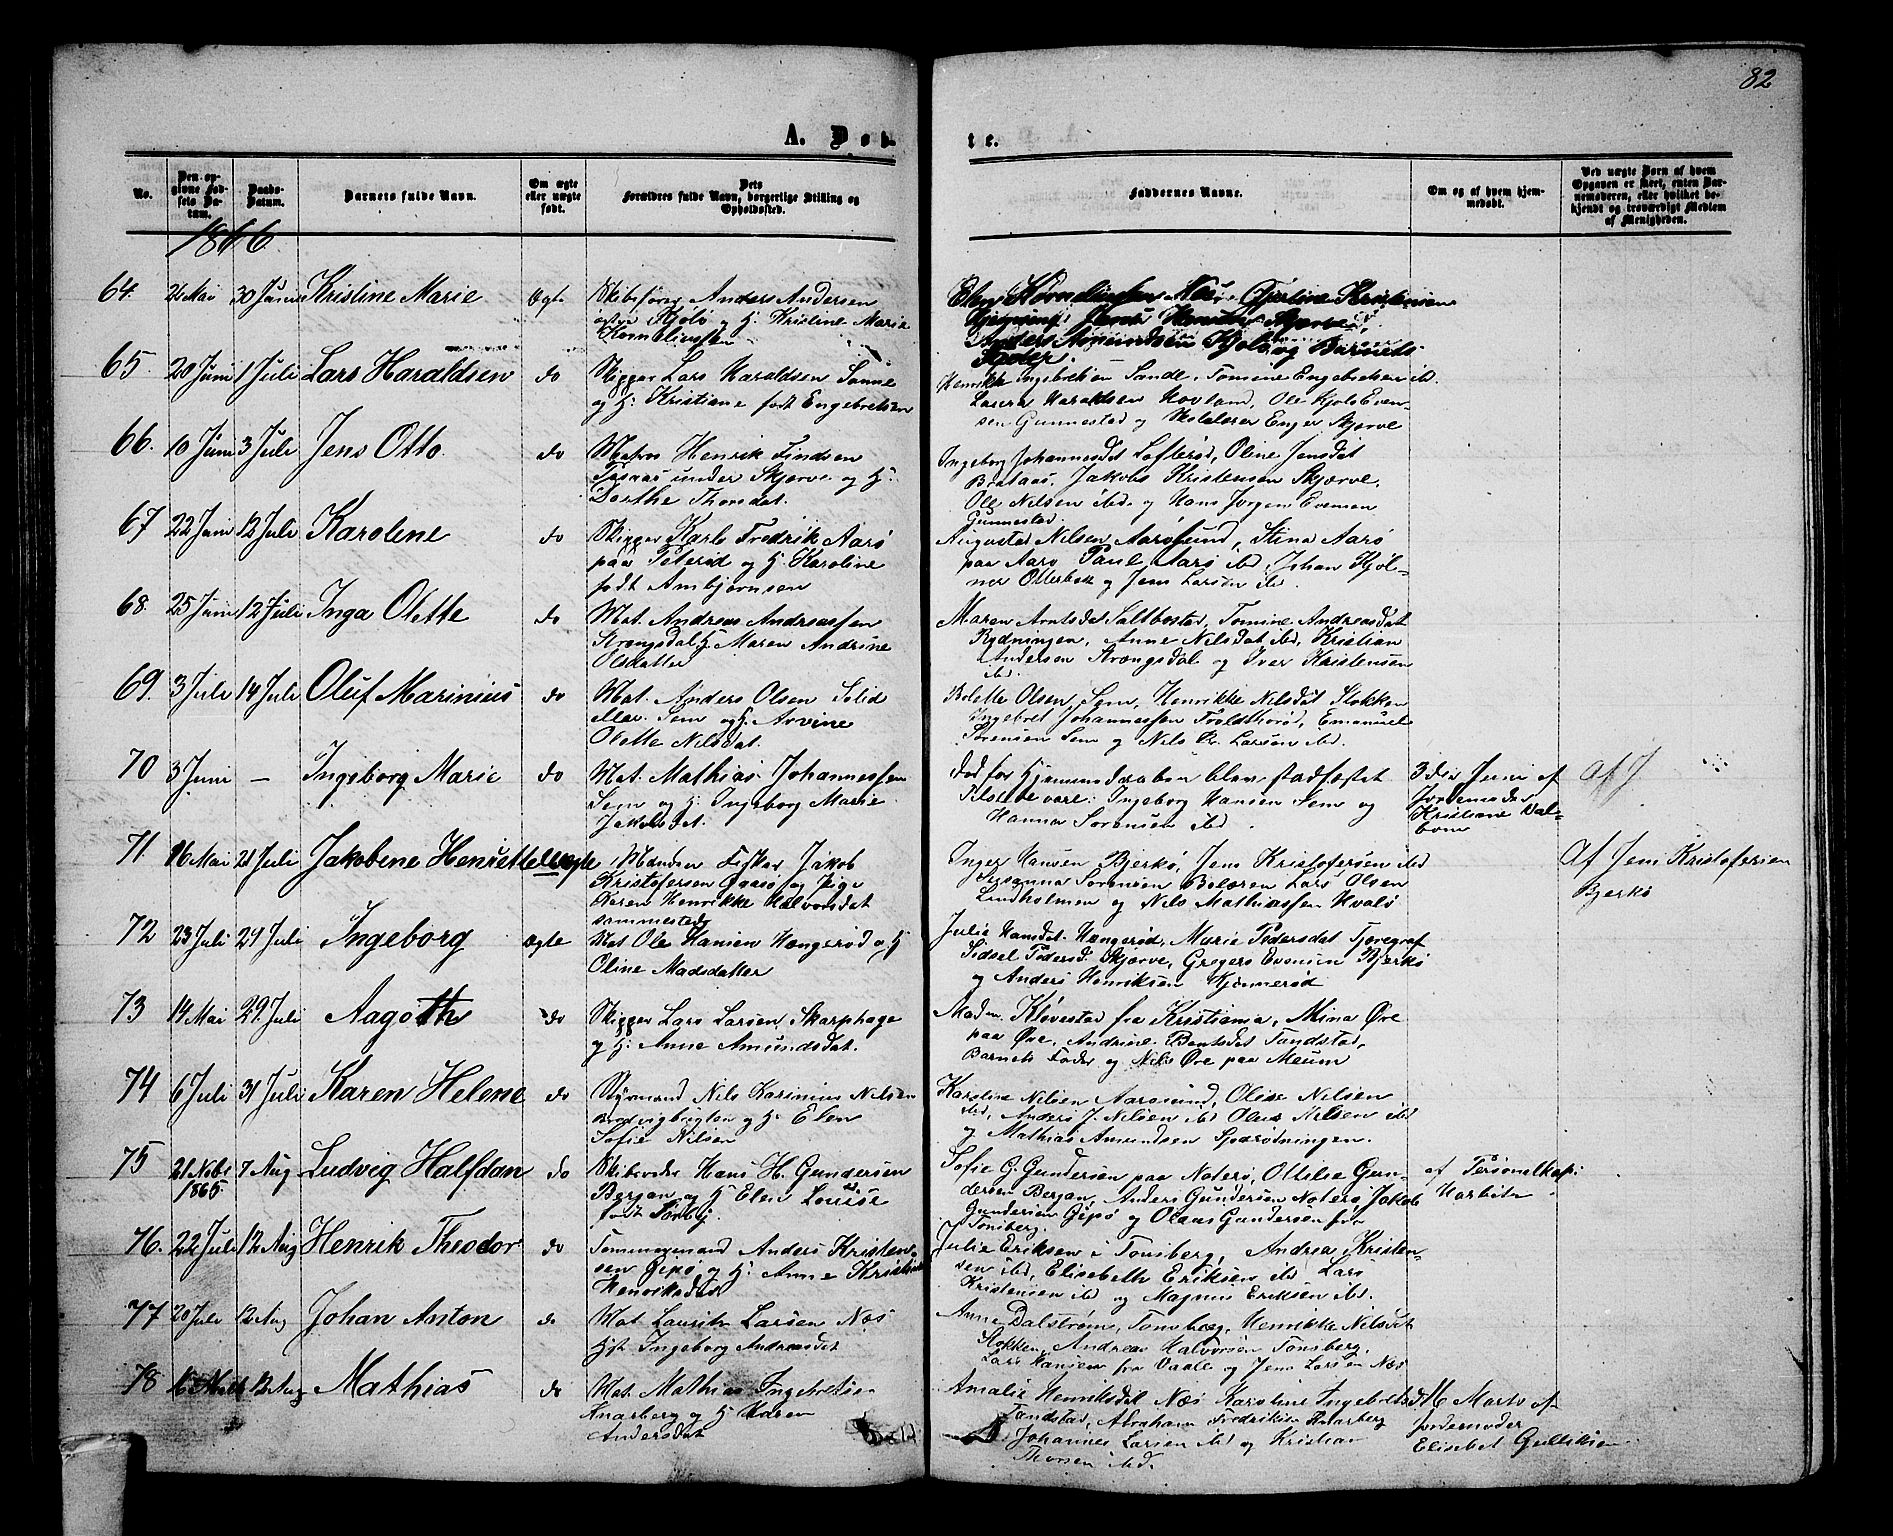 82
A. Døb
te.
No.
Den opgivne Fødsels Datum.
Daabs-Datum.
Barnets fulde Navn.
Om ægte eller uægte født.
Dets Forældres fulde Navn, borgerlige Stilling og Opholdssted.
Faddernes Navne.
Om og af hvem hjemmedøbt.
Ved uægte Børn af hvem Opgaven er skeet, enten Barnemoderen, eller hvilket bekjendt og troværdigt Medlem af Menigheden.
1866
64. 2 Mai 30 Juni Kristine Marie Ægte Skibsfører Anders Andersen
Kjølø og H. Kristine Marie
Kornelinssen
Anders Amundsen Kjølø og Barnets
Fader.
65. 20 Juni 1 Juli Lars Haraldsen do Skipper Lars Haraldsen Sanne
og H. Kristiane født Engebretsen
Henrikke Ingebretsen Sande, Tomine Engebretsen ibd.
Laura Haraldsen Hovland, Ole Kjølø Even-
sen Gunnestad og Skolelærer Enger Skjerve
66. 10 Juni 3 Juli Jens Otto do Matros Henrik Findsen
Taaas under Skjerve og H.
Dorthe Thorsdat.
Ingeborg Johannesdat Lofterød, Oline Jensdat
Brataas, Jakob Kristensen Skjerve,
Ole Nilsen ibd. og Hans Jørgen Evensen
Gunnestad.
67 22 Juni 12 Juli Karolene do Skipper Karl Fredrik Aarø
paa Peterød og H. Karoline
født Ambjørnsen
Augusta Nilsen Aarøsund, Stina Aarø
paa Aarø Paul Aarø ibd, Johan Kjøl-
ner Otterbek og Jens Larsen ibd.
68. 25 Juni 12 Juli Inga Olette do Mat. Andreas Andreassen
Strengsdal H. Maren Andrine
Olsdatter
Maren Arntsdat Saltbostad, Tomine Andreasdat
Rydningen, Anne Nilsdat ibd, Kristian
Andersen Strængsdal og Iver Kristensen
ibd.
69. 3 Juli 14 Juli Oluf Marinius do Mat. Anders Olsen Solid
eller Sem og H. Arvine
Olette Nilsdat.
Bolette Olsen, Sem, Henrikke Nilsdat Stokken
Ingebret Johannessen Troldthorød, Emanuel
Sørensen Sem og Nils Kr. Larsen ibd.
70 3 Juni — Ingeborg Marie do Mat. Mathias Johannessen
Sem og H. Ingeborg Marie
Jakobsdat.
død før Hjemmedaaben blev stadfæstet
Tilstede vare: Ingeborg Hansen Sem og
Hanna Sørensen ibd
3die Juni af
Jordemoder
Kristiane Dal-
bom
af J
71. 16 Mai 21 Juli Jakobene Henriette Uægte Manden Fisker Jakob
Kristofersen Gaasø og Pige
Karen Henrikke Halvorsdat
sammesteds
Inger Hansen Bjerkø, Jens Kristofersen ibd
Susanna Sørensen Bolæren Lars Olsen
Lindholmen og Nils Mathiassen Hvalø
Af Jens Kristofersen
Bjerkø
72 23 Juli 29 Juli Ingeborg ægte Mat Ole Hansen Hængerød og H
Oline Madsdatter
Julie Hansdat. Hængerød, Marie Pedersdat Tjøregraf
Sidsel Pedersd. Skjerve, Gregers Evensen Bjerkø
og Anders Henriksen Kjønnerød
73 14 Mai 29 Juli Aagoth do Skipper Lars Larsen Skarphage
og H: Anne Amundsdat.
Madm. Kløvestad fra Kristiania, Mina Øre
paa Øre, Andrine Bentsdat Tandstad,
Barnets Fader og Nils Øre paa Meum
74 6 Juli 31 Juli Karen Helene do Styrmand Nils Karinius Nilsen
og H. Elen
Sofie Nilsen
Karoline Nilsen Aarøsund, Olise Nilsen
ibd, Anders J. Nilsen ibd Olaus Nilsen ibd
og Mathias Amundsen Sparødningen.
75 21 Novbr 1865. 7 Aug Ludvig Halfdan do Skibsreder Hans H. Gundersen
Bergan og H Elen Lovise
født Sønby.
Sofie G. Gundersen paa Noterø, Ottilie Gun-
dersen Bergan, Anders Gundersen Noterø Jakob
Gundersen Gipø og Olaus Gundersen fra
Tønsberg.
af Personelkap:
Harbitz
76. 22 Juli 12 Aug Henrik Theodor do Tømmermand Anders Kristen-
sen Gipø og H. Anne Kristine
Henriksdat
Julie Eriksen i Tønsberg, Andrea Kristen-
sen ibd, Elisebeth Eriksen ibd Lars
Kristensen ibd og Magnus Eriksen ibd.
77 20 Juli 12 Aug Johan Anton do Mat. Lauritz Larsen Næs
H. Ingeborg Andreasdat
Anne Dalstrøm, Tønsberg, Henrikke Nilsdat
Stokken, Andreas Halvorsen Tønsberg,
Lars Hansen fra Vaale og Jens Larsen Næs
78 12 Aug Mathias do Mat. Mathias Ingebretsen
Knarberg og H Karen
Andersdat
Amalie Henriksdat Næs Karoline Ingebretsd.
Tandstad, Abraham Fredriksen Knarberg
Johannes Larsen ibd og Kristian
Thorsen ibd.
16 Marts af
Jordemoder
Elisebet Gulliksen